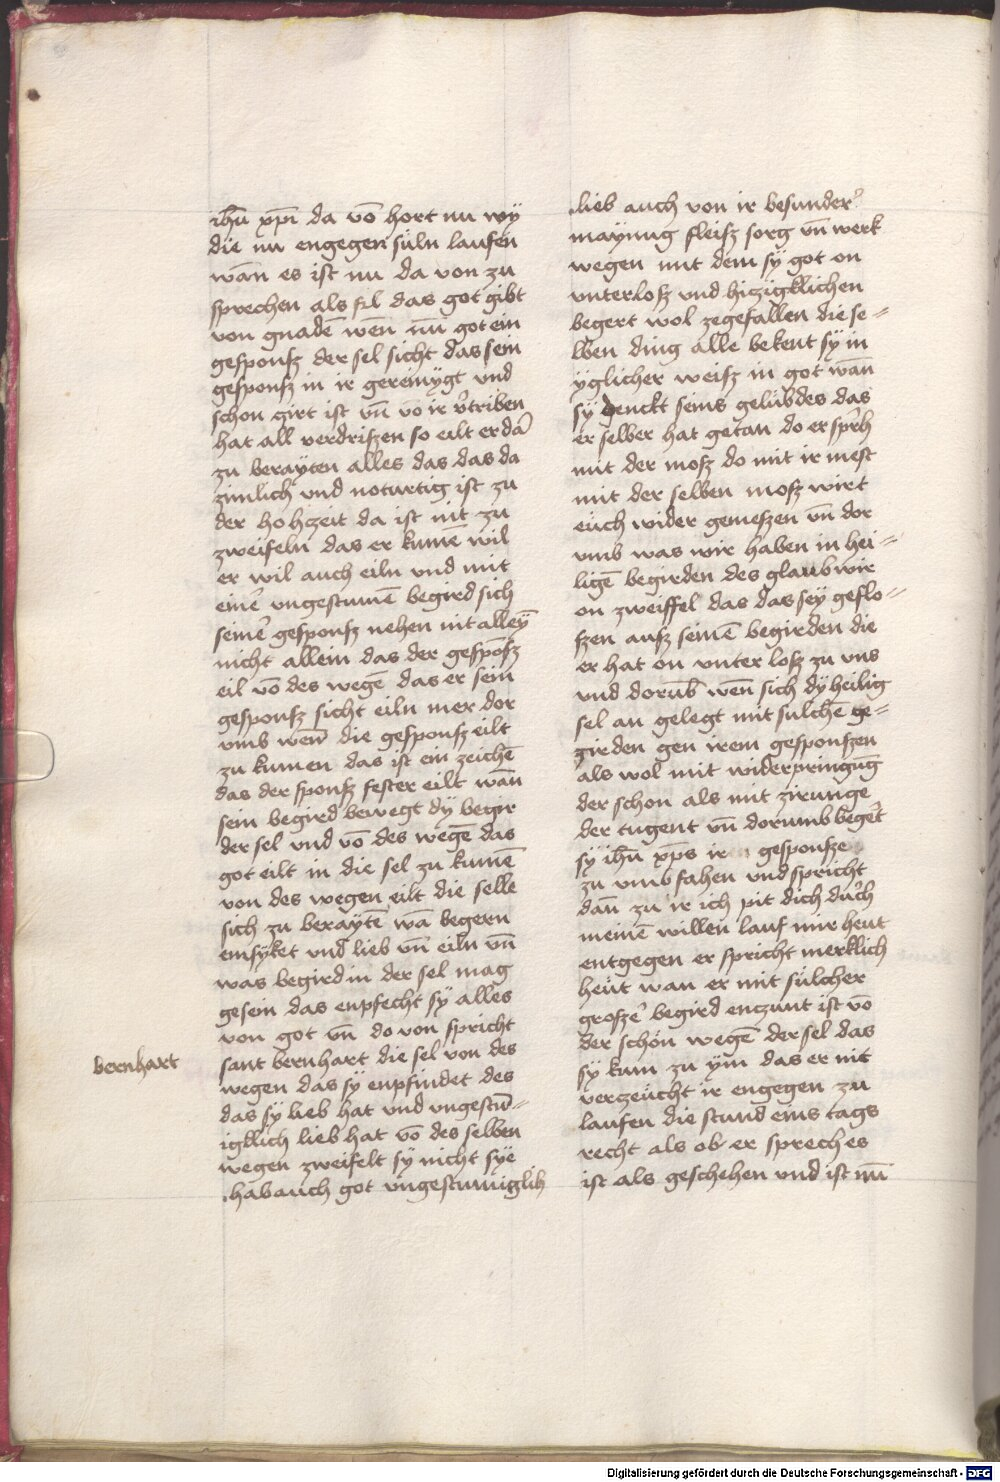 ihū xpī da vō hort nu wÿ
die nu engegen süln laufen
wān es ist nu da von zu
sprechen als fil das got gibt
von gnadē wēn nū got ein
gesponsz der sel sicht das sein
gesponsz in ir gereinÿgt vnd
schon girt ist vn̄ vō ir v̓triben
hat all verdriszen so eilt er dā
zu beraÿten alles das das da
zimlich vnd noturtig ist zu
der hohzeit da ist nit zu
zweifeln das er kumē wil
er wil auch eiln vnd mit
einē vngestumē begird sich
seinē gesponsz nehen nit alleȳ
nicht allein das der gespōsz
eil vō des wegē das er sein
gesponsz sicht eiln mer dor
vmb wēn die gesponsz eilt
zu kumen das ist ein zeichē
das der sponsz fester eilt wān
sein begird bewegt dÿ begir
der sel vnd vō des wegē das
got eilt in die sel zu kumē
von des wegen eilt die selle
sich zu beraÿtē wā begern
emsÿket vnd lieb vn̄ eiln vn̄
was begird in der sel mag
gesein das enpfecht sÿ alles
von got vn̄ do von spricht
bernhart
sant bernhart die sel von des
wegen das sÿ enpfindet des
das sÿ lieb hat vnd vngestū=
igklich lieb hat vō des selben
wegen zweifelt sÿ nicht sÿe
hab auch got vngestumiglih
lieb auch von ir besunder̓
maÿnug fleisz sorg vn̄ werk
wegen mit dem sÿ got on
vnterlosz vnd hiczigklichen
begert wol zegefallen die se=
lben ding alle bekent sÿ in
ÿglicher weisz in got wān
sÿ denckt seins gelübdes das
er selber hat getan do er sprch
mit der mosz do mit ir mest
mit der selben mosz wirt
eüch wider gemeszen vn̄ dor
vmb was wir haben in hei=
ligē begirden des glaub wir
on zweiffel das das seÿ geflo=
szen ausz seinē begirden die
er hat on vnter losz zu vns
vnd dorūb wēn sich dÿ heilig
sel an gelegt mit sulchē ge=
zirden gen irem gesponszen
als wol mit widerpringūg
der schon als mit zirunge
der tugent vn̄ dorumb beger̓t
sÿ ihū xp̄s ir gesponsze
zu vmbfahen vnd spricht
dān zu ir ich pit dich durch
meinē willen lauf mir heut
entgegen er spricht merklich
heüt wan er mit sülcher
grosze̓ begird enczunt ist vō
der schön wegē der sel das
sÿ kum zu ÿm das er nit
verzeücht ir engegen zu
laufen die stund eins tags
recht als ob er sprech es
ist als geschehen vnd ist nū
Digitalisierung gefördert durch die Deutsche Forschungsgemeinschaft - DFG